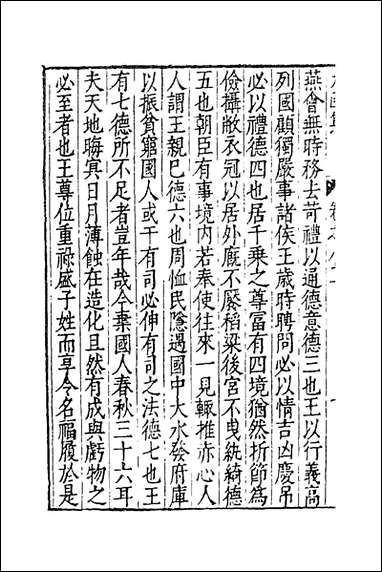 燕會無時務去苛禮以通德意德三也王以行義高
列國顧獨嚴事諸侯王歲時聘問必以情吉凶慶吊
必以禮德四也居千乘之尊富有四境猶然折節為
儉攝敝衣冠以居外廐不饜稻粱後宮不曳紈綺德
五也朝臣有事境内若奉使往來一見輙推赤心人
人謂王親巳德六也周恤民隱遇國中大水發府庫
以振貧窮國人或干有司必伸有司之法德七也王
有七德所不足者豈年哉今棄國人春秋三十六耳
夫天地晦冥日月薄蝕在造化且然有成與虧物之
必至者也王尊位重祿盛子姓而享令名福履於是